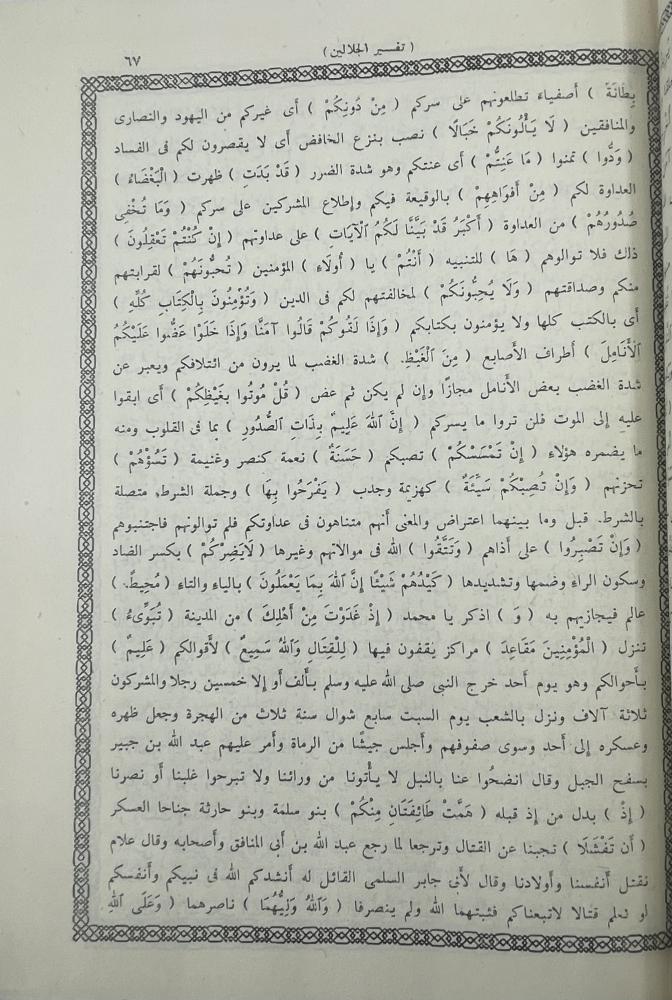 ( تفسير الجلالين )
٦٧
بِطَانَةً ) أصفياء تطلعونهم على سركم ( مِنْ دُونِكُمْ ) أى غيركم من اليهود والنصارى
والمنافقين ( لَا يَأْلُونَكُمْ خَبَالًا ) نصب بنزع الخافض أى لا يقصرون لكم فى الفساد
( وَدُّوا ) تمنوا ( مَا عَنِتُّمْ ) أى عنتكم وهو شدة الضرر ( قَدْ بَدَتِ ) ظهرت ( الْبَغْضَاءُ )
العداوة لكم ( مِنْ أَفْوَاهِهِمْ ) بالوقيعة فيكم وإطلاع المشركين على سركم ( وَمَا تُخْفِى
صُدُورُهُمْ ) من العداوة ( أَكْبَرُ قَدْ بَيَّنَّا لَكُمُ الْآيَاتِ ) على عداوتهم ( إِنْ كُنْتُمْ تَعْقِلُونَ )
ذلك فلا توالوهم ( هَا ) للتنبيه ( أَنْتُمْ ) يا ( أُولَاءِ ) المؤمنين ( تُحِبُّونَهُمْ ) لقرابتهم
منكم وصداقتهم ( وَلَا يُحِبُّونَكُمْ ) لمخالفتهم لكم فى الدين ( وَتُؤْمِنُونَ بِالْكِتَابِ كُلِّهِ )
أى بالكتب كلها ولا يؤمنون بكتابكم ( وَإِذَا لَقُوكُمْ قَالُوا آمَنَّا وَإِذَا خَلَوْا عَضُّوا عَلَيْكُمُ
الْأَنَامِلَ ) أطراف الأصابع ( مِنَ الْغَيْظِ ) شدة الغضب لما يرون من ائتلافكم ويعبر عن
شدة الغضب بعض الأنامل مجازًا وإن لم يكن ثم عض ( قُلْ مُوتُوا بِغَيْظِكُمْ ) أى ابقوا
عليه إلى الموت فلن تروا ما يسركم ( إِنَّ اللهَ عَلِيمٌ بِذَاتِ الصُّدُورِ ) بما فى القلوب ومنه
ما يضمره هؤلاء ( إِنْ تَمْسَسْكُمْ ) تصبكم ( حَسَنَةٌ ) نعمة كنصر وغنيمة ( تَسُؤْهُمْ )
تحزنهم ( وَإِنْ تُصِبْكُمْ سَيِّئَةٌ ) كهزيمة وجدب ( يَفْرَحُوا بِهَا ) وجملة الشرط متصلة
بالشرط قبل وما بينهما اعتراض والمعنى أنهم متناهون فى عداوتكم فلم توالونهم فاجتنبوهم
( وَإِنْ تَصْبِرُوا ) على أذاهم ( وَتَتَّقُوا ) الله فى موالاتهم وغيرها ( لَايَضِرْكُمْ ) بكسر الضاد
وسكون الراء وضمها وتشديدها ( كَيْدُهُمْ شَيْئًا إِنَّ اللهَ بِمَا يَعْمَلُونَ ) بالياء والتاء ( مُحِيطٌ )
عالم فيجازيهم به ( وَ ) اذكر يا محمد ( إِذْ غَدَوْتَ مِنْ أَهْلِكَ ) من المدينة ( تُبَوِّئُ )
تنزل ( الْمُؤْمِنِينَ مَقَاعِدَ ) مراكز يقفون فيها ( لِلْقِتَالِ وَاللهُ سَمِيعٌ ) لأقوالكم ( عَلِيمٌ )
بأحوالكم وهو يوم أحد خرج النبى صلى الله عليه وسلم بألف أو إلا خمسين رجلا والمشركون
ثلاثة آلاف ونزل بالشعب يوم السبت سابع شوال سنة ثلاث من الهجرة وجعل ظهره
وعسكره إلى أحد وسوى صفوفهم وأجلس جيشًا من الرماة وأمر عليهم عبد الله بن جبير
بسفح الجبل وقال انضحُوا عنا بالنبل لا يأتونا من ورائنا ولا تبرحوا غلبنا أو نصرنا
( إِذْ ) بدل من إذ قبله ( هَمَّتْ طَائِفَتَانِ مِنْكُمْ ) بنو سلمة وبنو حارثة جناحا العسكر
( أَن تَفْشَلَا ) تجبنا عن القتال وترجعا لما رجع عبد الله بن أبى المنافق وأصحابه وقال علام
نقتل أنفسنا وأولادنا وقال لأبى جابر السلمى القائل له أنشدكم الله فى نبيكم وأنفسكم
لو نعلم قتالا لاتبعناكم فثبتهما الله ولم ينصرفا ( وَاللهُ وَلِيُّهُمَا ) ناصرهما ( وَعَلَى اللهِ